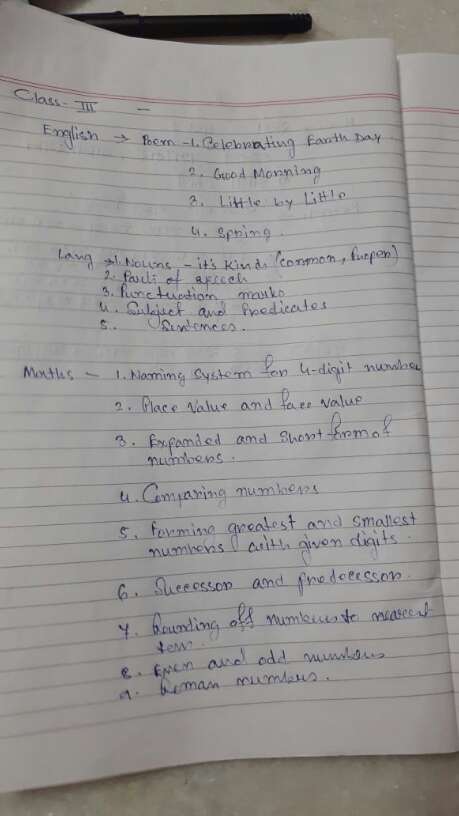 Class - III -
English → Poem - 1. Celebrating Earth Day
2. Good Morning
3. Little by Little
4. Spring.
Lang → 1. Nouns - it's kinds (common, proper)
2. Parts of speech
3. Punctuation marks
4. Subject and Predicates
5. Sentences.
Maths - 1. Naming System for 4-digit number
2. Place Value and face value
3. Expanded and Short form of
numbers.
4. Comparing numbers
5. Forming greatest and smallest
numbers with given digits.
6. Successor and predecessor.
7. Rounding off numbers to nearest
ten.
8. Even and odd numbers
9. Roman numbers.